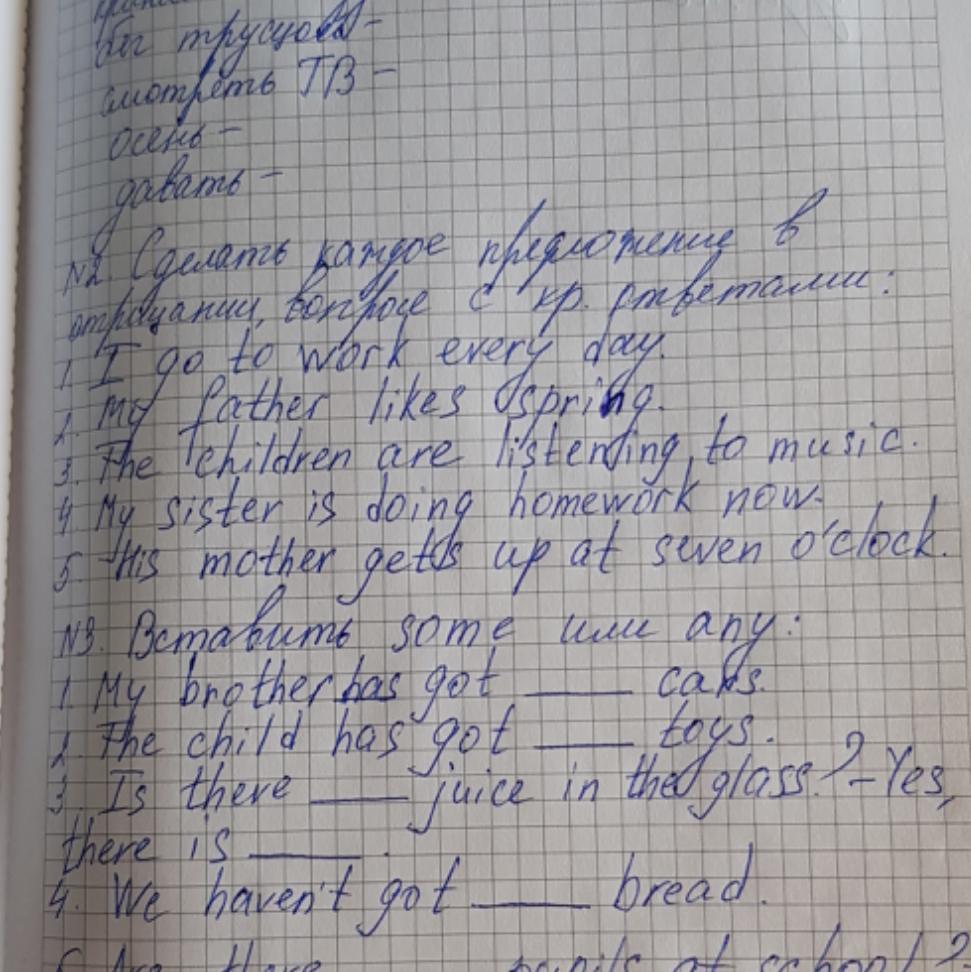 бег трусцой -
смотреть ТВ -
осень -
давать -
№2. Сделать каждое предложение в
отрицании, вопросе с кр. ответами:
1. I go to work every day.
2. My father likes spring.
3. The children are listening to music.
4. My sister is doing homework now.
5. His mother gets up at seven o'clock.
№3. Вставить some или any:
1. My brother has got ___ cars.
2. The child has got ___ toys.
3. Is there ___ juice in the glass? - Yes,
there is ___.
4. We haven't got ___ bread.
5. Are there ___ pupils at school?